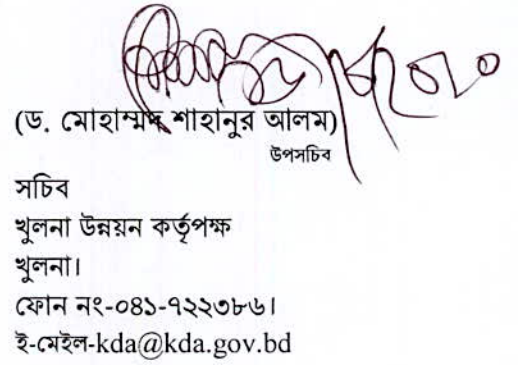 (ড. মোহাম্মদ শাহানুর আলম)
উপসচিব
সচিব
খুলনা উন্নয়ন কর্তৃপক্ষ
খুলনা।
ফোন নং-০৪১-৭২২৩৮৬।
ই-মেইল-kda@kda.gov.bd